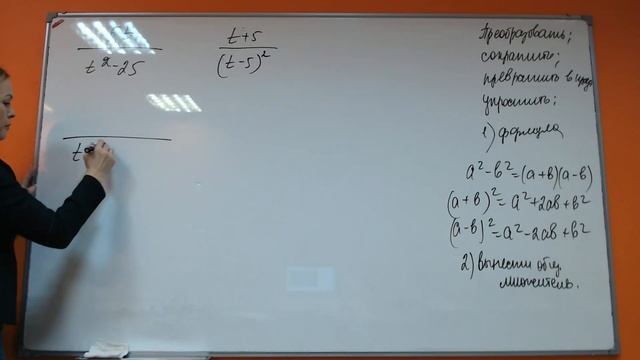 t² - 25
t + 5
(t - 5)²
t
Преобразовать;
сократить;
превратить в
упростить;
1) формула
a² - b² = (a + b)(a - b)
(a + b)² = a² + 2ab + b²
(a - b)² = a² - 2ab + b²
2) вынести общ.
множитель.